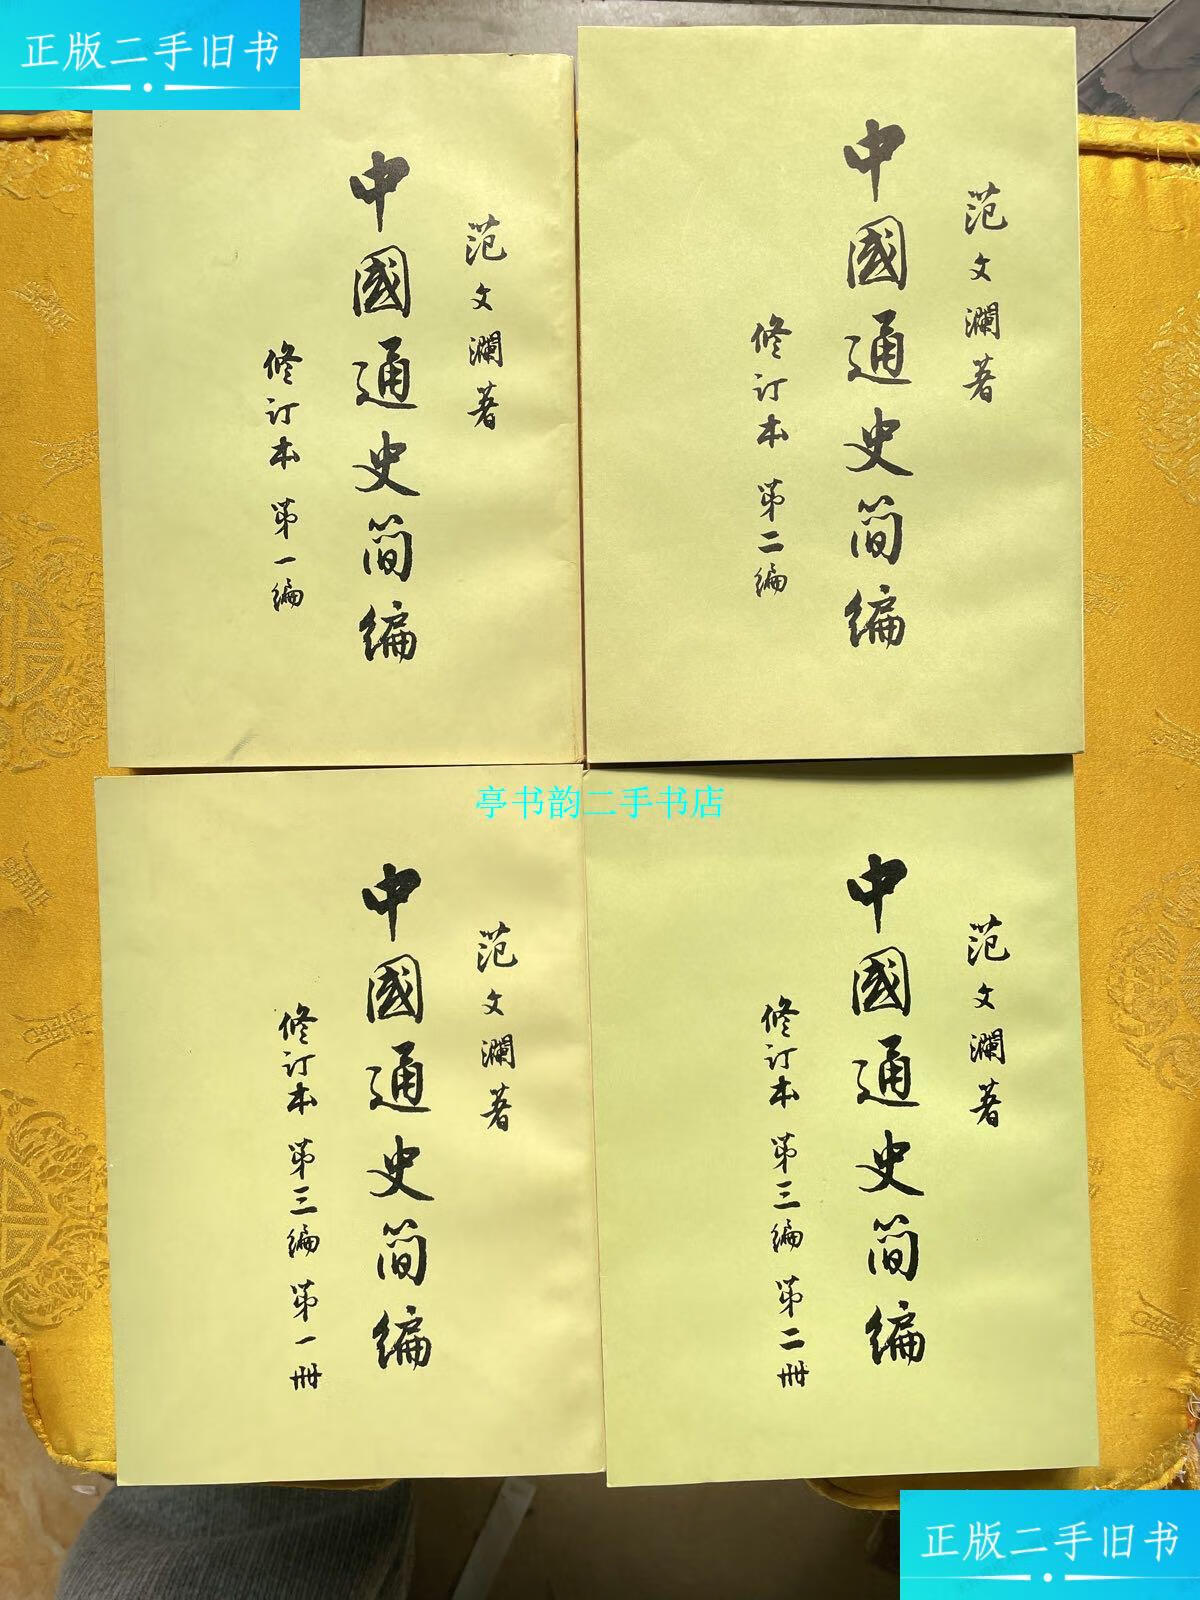 正版二手旧书
范文瀾著
中國通史简编
修订本 第一编
范文瀾著
中國通史简编
修订本 第二编
亭书韵二手书店
范文瀾著
中國通史简编
修订本 第三编 第一册
范文瀾著
中國通史简编
修订本 第三编 第二册
正版二手旧书